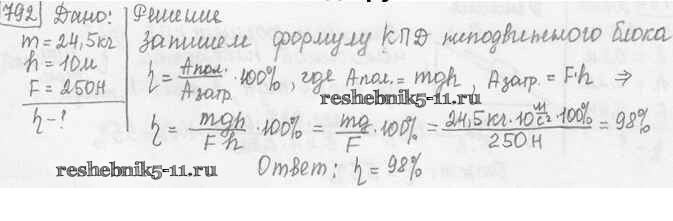 792 Дано: Решение
m = 24,5 кг Запишем формулу КПД неподвижного блока
h = 10м η = Aпол./Aзатр. · 100%, где Aпол. = mgh, Aзатр. = F·h ⇒
F = 250Н
reshebnik5-11.ru
η - ? η = mgh/Fh · 100% = mg/F · 100% = 24,5 кг · 10 м/с² · 100%/250 Н = 98%
reshebnik5-11.ru Ответ: η = 98%